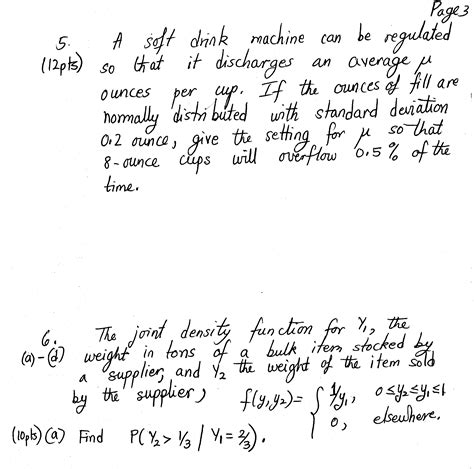 Page 3
5. A soft drink machine can be regulated
(12pts) so that it discharges an average μ
ounces per cup. If the ounces of fill are
normally distributed with standard deviation
0.2 ounce, give the setting for μ so that
8-ounce cups will overflow 0.5% of the
time.
6. The joint density function for Y₁, the
(a)-(d) weight in tons of a bulk item stocked by
a supplier, and Y₂ the weight of the item sold
by the supplier, f(y₁,y₂)= { 1/y₁, 0≤y₂≤y₁≤1
0, elsewhere.
(10pts) (a) Find P(Y₂ > 1/3 | Y₁ = 2/3).